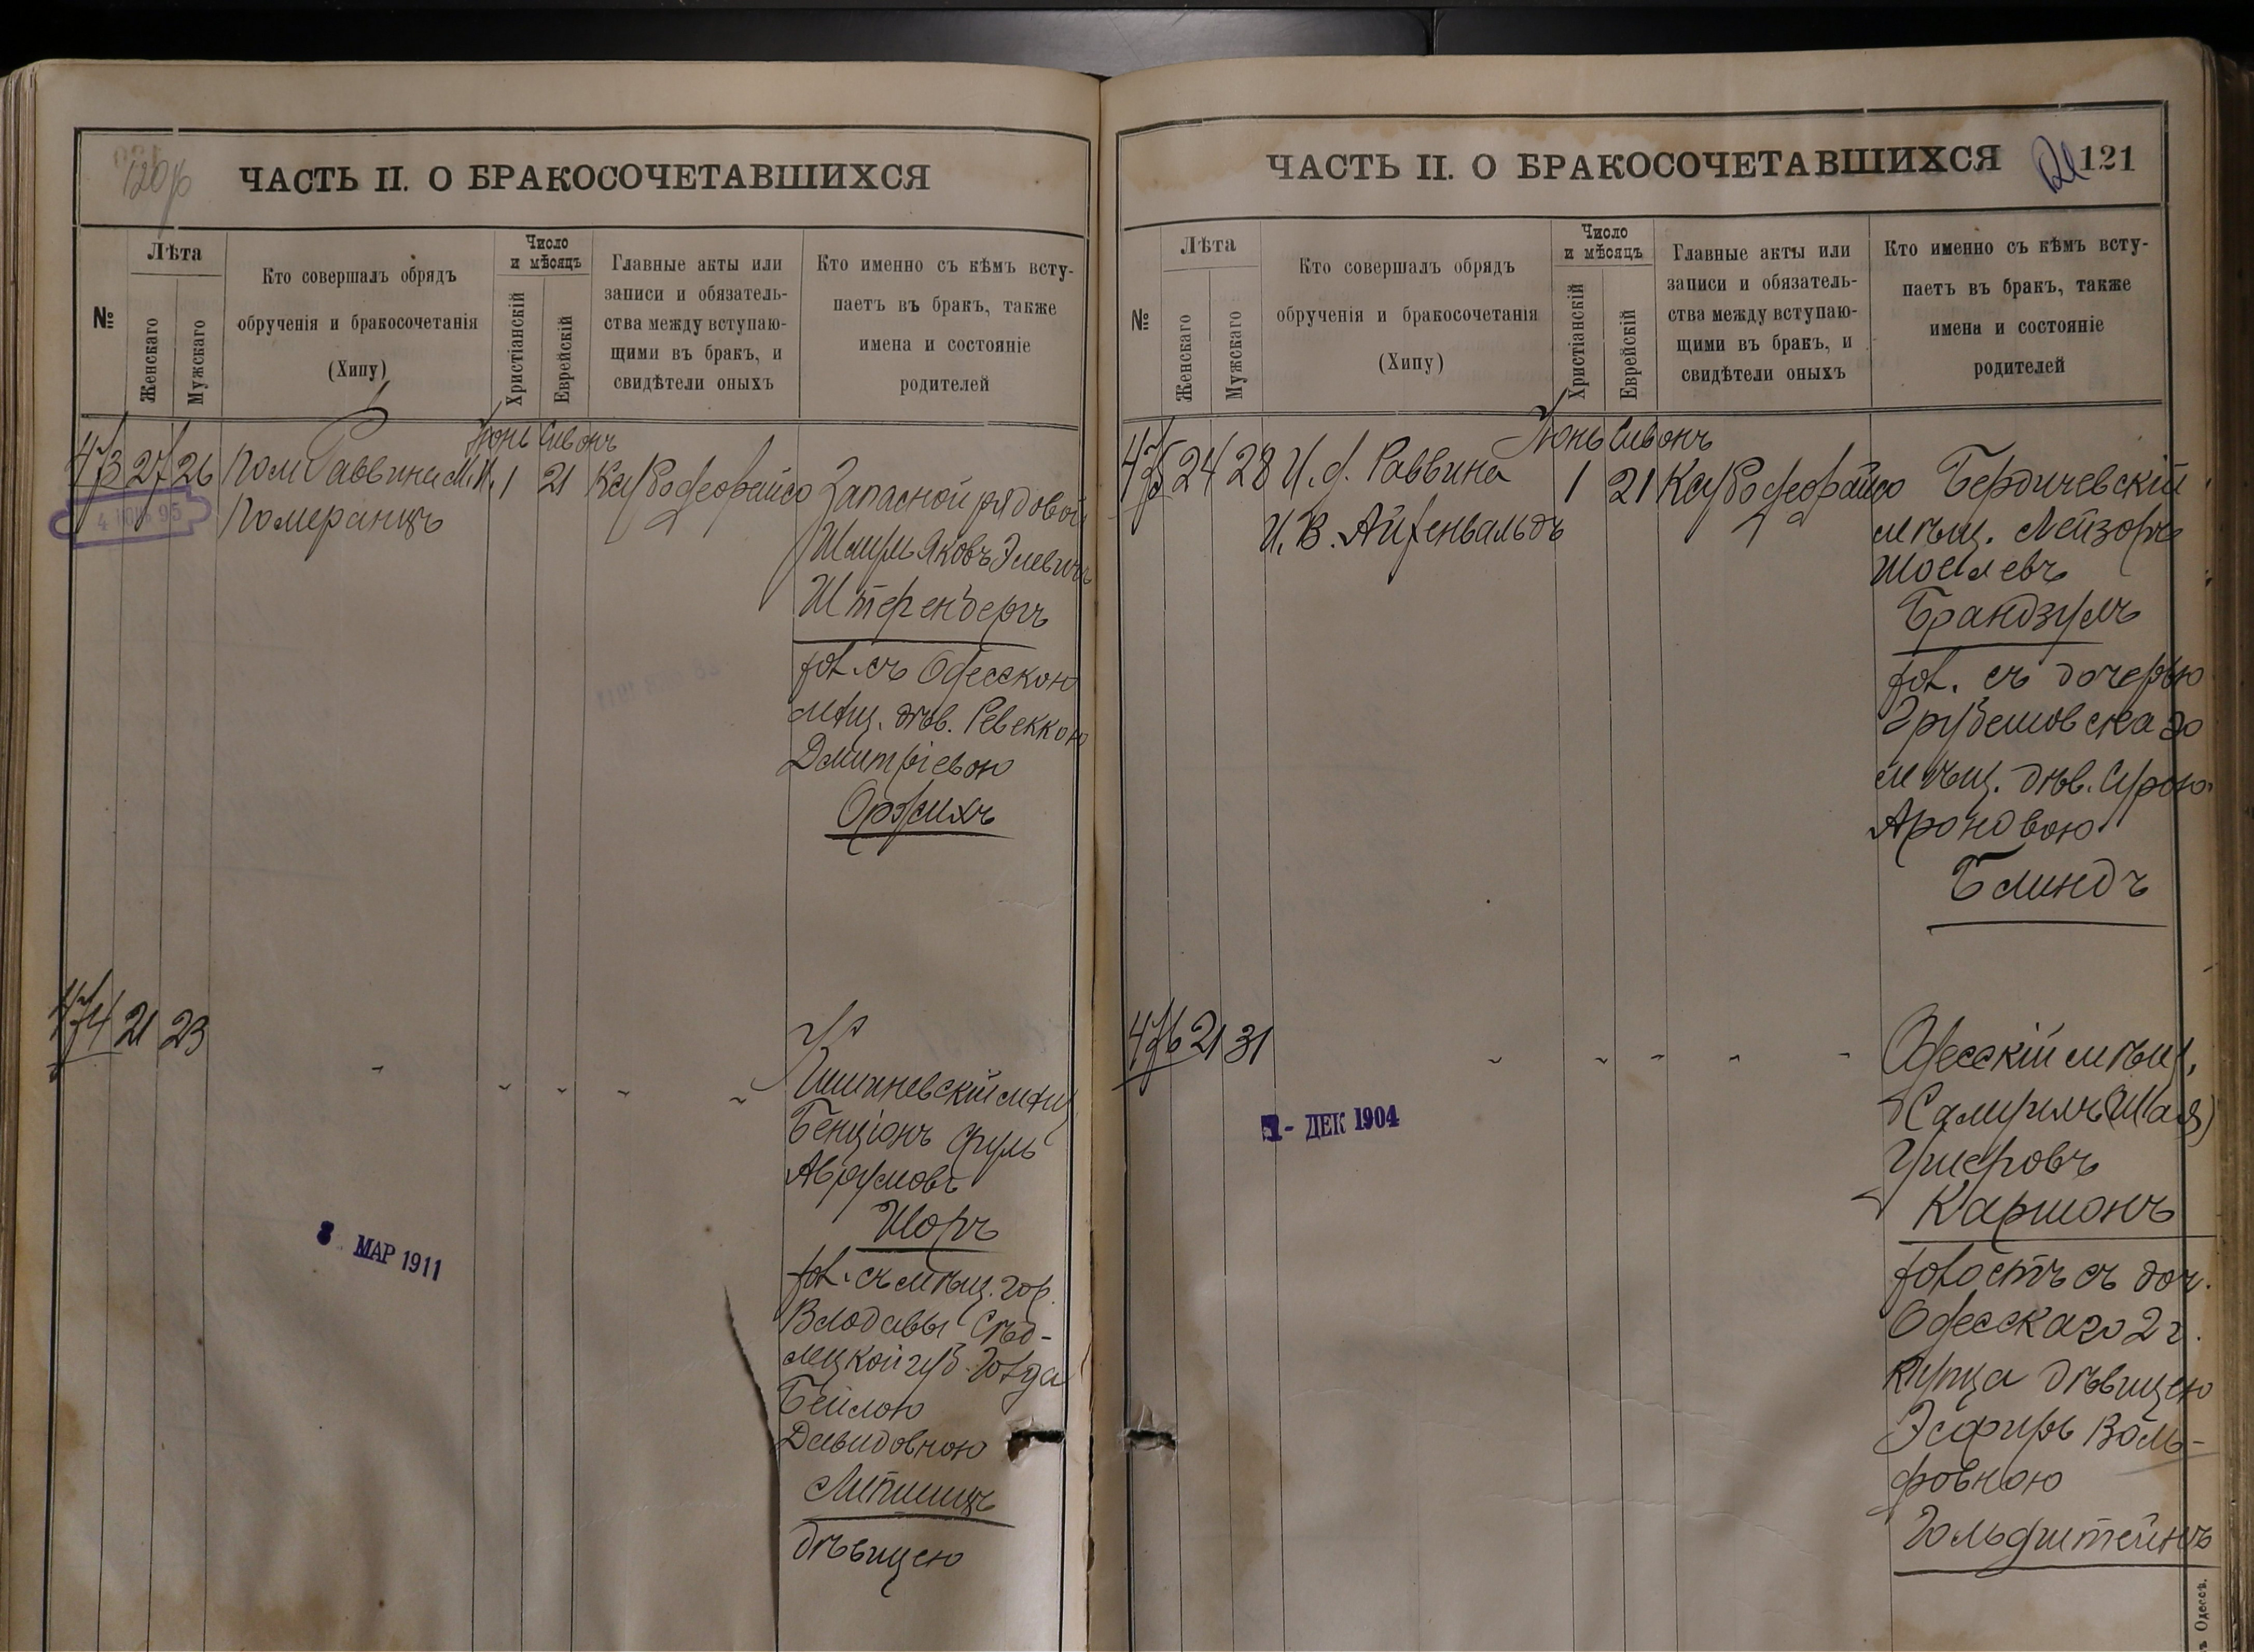 120 об
ЧАСТЬ II. О БРАКОСОЧЕТАВШИХСЯ
№
Лѣта
Женскаго
Мужскаго
Кто совершалъ обрядъ
обрученія и бракосочетанія
(Хипу)
Число
и мѣсяцъ
Христіанскій
Еврейскій
Главные акты или
записи и обязатель-
ства между вступаю-
щими въ бракъ, и
свидѣтели оныхъ
Кто именно съ кѣмъ всту-
паетъ въ бракъ, также
имена и состояніе
родителей
Іюнь Сивонъ
473 27 26 Пом Раввина М. И. 1 21
Померанцъ
Запасной рядовой
Шмуль Яковъ Элевичъ
Штеренбергъ
хол. съ Одесскою
мѣщ. дѣв. Ревеккою
Дмитріевою
Оржихъ
474 21 23
Кишиневскій мѣщ
Бенціонъ Сруль
Аврумовъ
Шоръ
хол. съ мѣщ. гор.
Влодавы Сѣд-
лецкой губ. Голда
Бейлою
Давидовною
Липшицъ
дѣвицею
МАР 1911
ЧАСТЬ II. О БРАКОСОЧЕТАВШИХСЯ
121
№
Лѣта
Женскаго
Мужскаго
Кто совершалъ обрядъ
обрученія и бракосочетанія
(Хипу)
Число
и мѣсяцъ
Христіанскій
Еврейскій
Главные акты или
записи и обязатель-
ства между вступаю-
щими въ бракъ, и
свидѣтели оныхъ
Кто именно съ кѣмъ всту-
паетъ въ бракъ, также
имена и состояніе
родителей
Іюнь Сивонъ
475 24 28 И. д. Раввина 1 21
И. В. Айзенвальдъ
Бердичевскій
мѣщ. Лейзоръ
Шоелевъ
Брандзумъ
хол. съ дочерью
Грубешовскаго
мѣщ. дѣв. Сурою
Ароновою
Блиндъ
476 21 31
Одесскій мѣщ.
(Шая)
Ушеровъ
Каршонъ
холостъ съ доч.
Одесскаго 2 г.
купца дѣвицею
Эсфирь Воль-
фовною
Гольдштейнъ
1 - ДЕК 1904
Одессѣ.